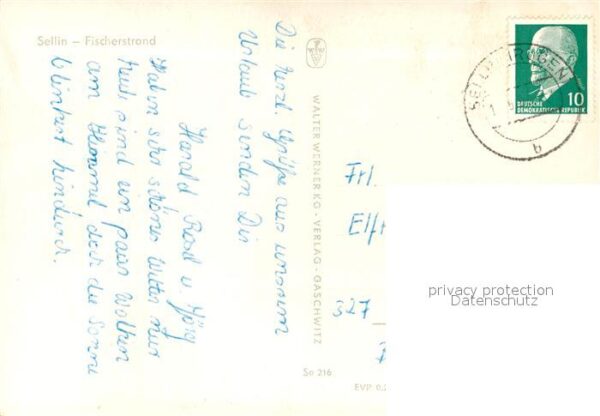 Sellin – Fischerstrand
Die herzl. Grüße aus unserem
Urlaub senden Dir
Harald Rosl u Jörg
Haben sehr schönes Wetter nur
heute sind ein paar Wolken
am Himmel doch die Sonne
blinkert hindurch.
WALTER WERNER KG · VERLAG · GASCHWITZ
So 216
EVP 0,2
SELLIN (RÜGEN)
b
10
DEUTSCHE
DEMOKRATISCHE REPUBLIK
Frl.
Elf
327
privacy protection
Datenschutz